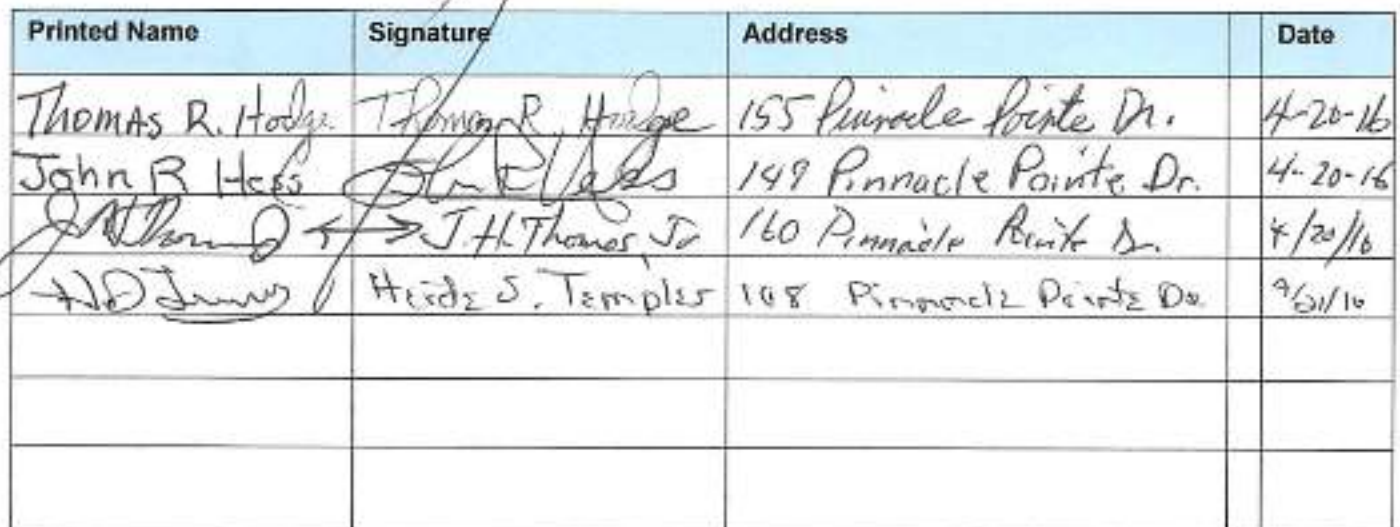 Printed Name Signature Address Date
Thomas R. Hodge Thomas R. Hodge 155 Pinnacle Pointe Dr. 4-20-16
John R Hess John R Hess 149 Pinnacle Pointe Dr. 4-20-16
J H Thomas J.H. Thomas, Jr 160 Pinnacle Pointe Dr. 4/20/16
S. Templer Pinnacle Pointe Dr